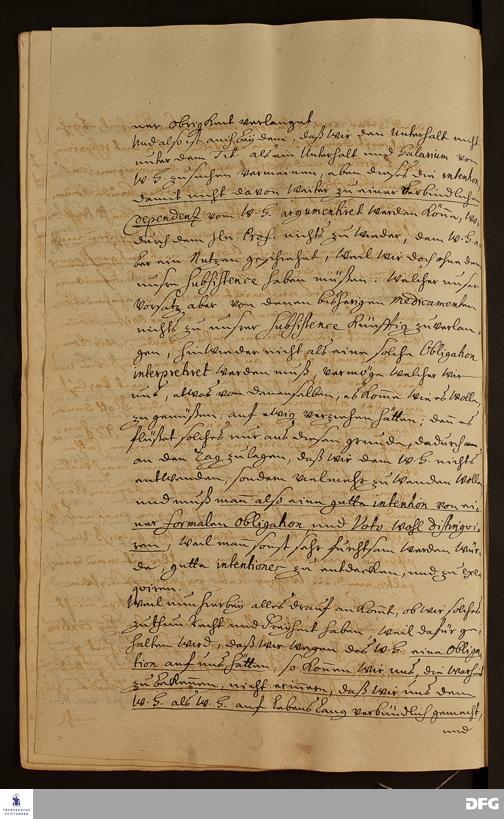 ner Obrigkeit verlanget.
Und also ist auch bey dem, daß wir den Unterhalt nicht
unter dem Tit. als ein Unterhalt und Salarium von
W. H. zu suchen vermeinen, eben dieses die intention,
damit nicht davon weiter zu einer Verbindlichen
Dependenz vom W. H. argumentiret werden könne, wo
durch dem Hn Prof. nichts zu wieder, dem W. H. a
ber ein Nutzen geschiehet, weil wir doch ohne dem
unsre Subsistence haben müßen. Welcher unser
Vorsatz aber von denen bißherigen Medicamenten
nichts zu unsrer Subsistence künfftig zu verlan-
gen, hinwieder nicht als eine solche Obligation
interpretiret werden muß, vermöge welcher wir
uns, etwas von denenselben, es komme wie es wolle,
zu genüßen, auf ewig verziehen hätten; denn es
flüßet solches nur aus diesem grunde, dadurch
an den Tag zu legen, daß wir dem W. H. nichts
entwenden, sondern vielmehr zu wenden wollen
und muß mann also eine gutte intention von ei-
ner formalen Obligation und Voto wohl distingvi-
ren, weil mann sonst sehr furchtsam werden wür-
de, gutte intentiones zu entdecken, und zu exe-
qviren.
Weil nun hierbey alles drauf an komt, ob wir solches
zu thun Recht und Freyheit haben, weil dafür ge-
halten wird, daß wir wegen des W. H. eine Obliga-
tion auf uns hätten, so können wir uns, die warheit
zu bekennen, nicht erinnern, daß wir uns dem
W. H. als W. H. auf Lebens Lang verbindlich gemacht,
und
FRANCKESCHE STIFTUNGEN
DFG